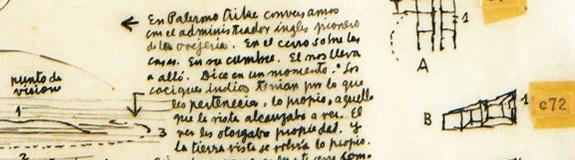 En Palermo Aike conversamos
con el administrador ingles pionero
de las ovejerias. En el cerro sobre las
casas. En su cumbre. El nos lleva
a allá. Dice en un momento. "Los
caciques indios tenian por lo que
les pertenecia, lo propio, aquello
que la vista alcanzaba a ver. El
ver les otorgaba propiedad. Y
la tierra vista se volvia lo propio.
punto de
vision
1
3
1
A
B
1
c72